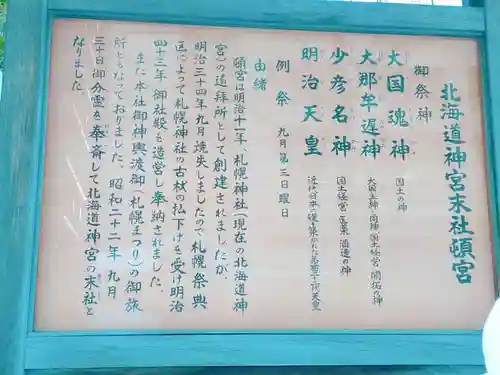 北海道神宮末社頓宮
御祭神
大国魂神 国土の神
大那牟遅神 大国主神と同神 国土経営・開拓の神
少彦名神 国土経営・医薬・酒造の神
明治天皇 近代日本の礎を築かれた第百二十二代天皇
例祭 九月第三日曜日
由緒
頓宮は明治十一年、札幌神社(現在の北海道神
宮)の遥拝所として創建されましたが、
明治三十四年九月焼失しましたので札幌祭典
区によって札幌神社の古材の払下げを受け明治
四十三年 御社殿を造営し奉納されました。
また本社御神輿渡御(札幌まつり)の御旅
所ともなっておりました。昭和二十二年九月
三十日御分霊を奉斎して北海道神宮の末社と
なりました。